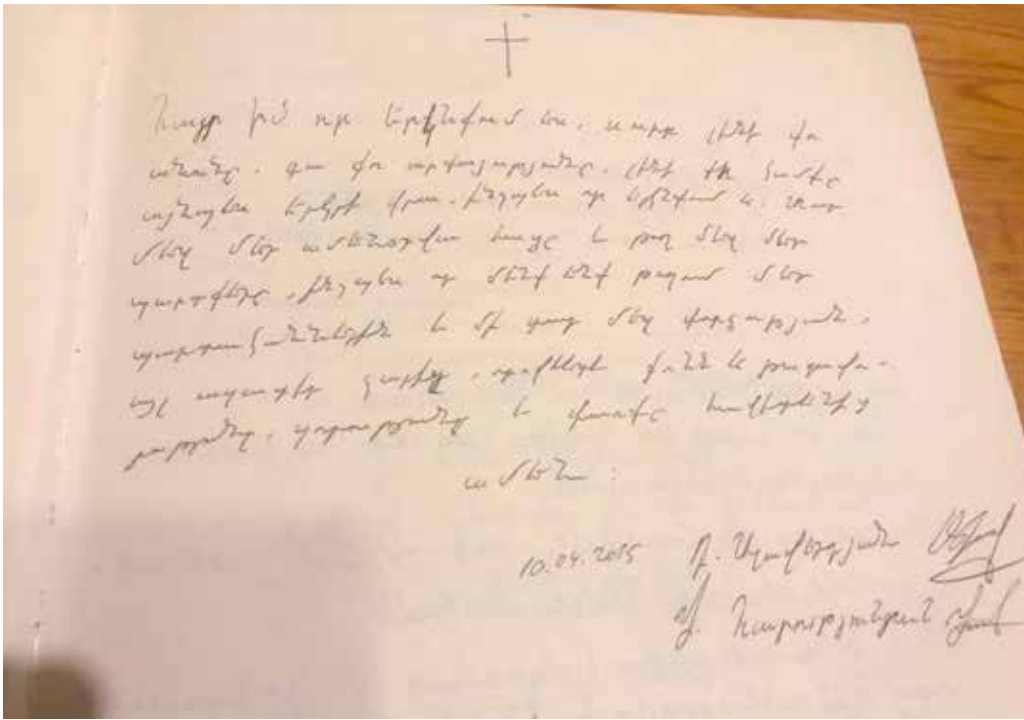 Հայր իմ որ երկնքում ես, սուրբ լինի քո
անունը. գա քո արքայությունը. լինի քո կամքը
այնպես երկրի վրա, ինչպես որ երկնքում է. Տուր
մեզ մեր ամենօրյա հացը և թող մեզ մեր
պարտքերը, ինչպես որ մենք ենք թողում մեր
պարտականներին և մի տար մեզ փորձության,
այլ ազատիր չարից, որովհետև քոնն է թագավո-
րությունը, զորությունը և փառքը հավիտենից
ամեն:
10.04.2015
Հարությունյան